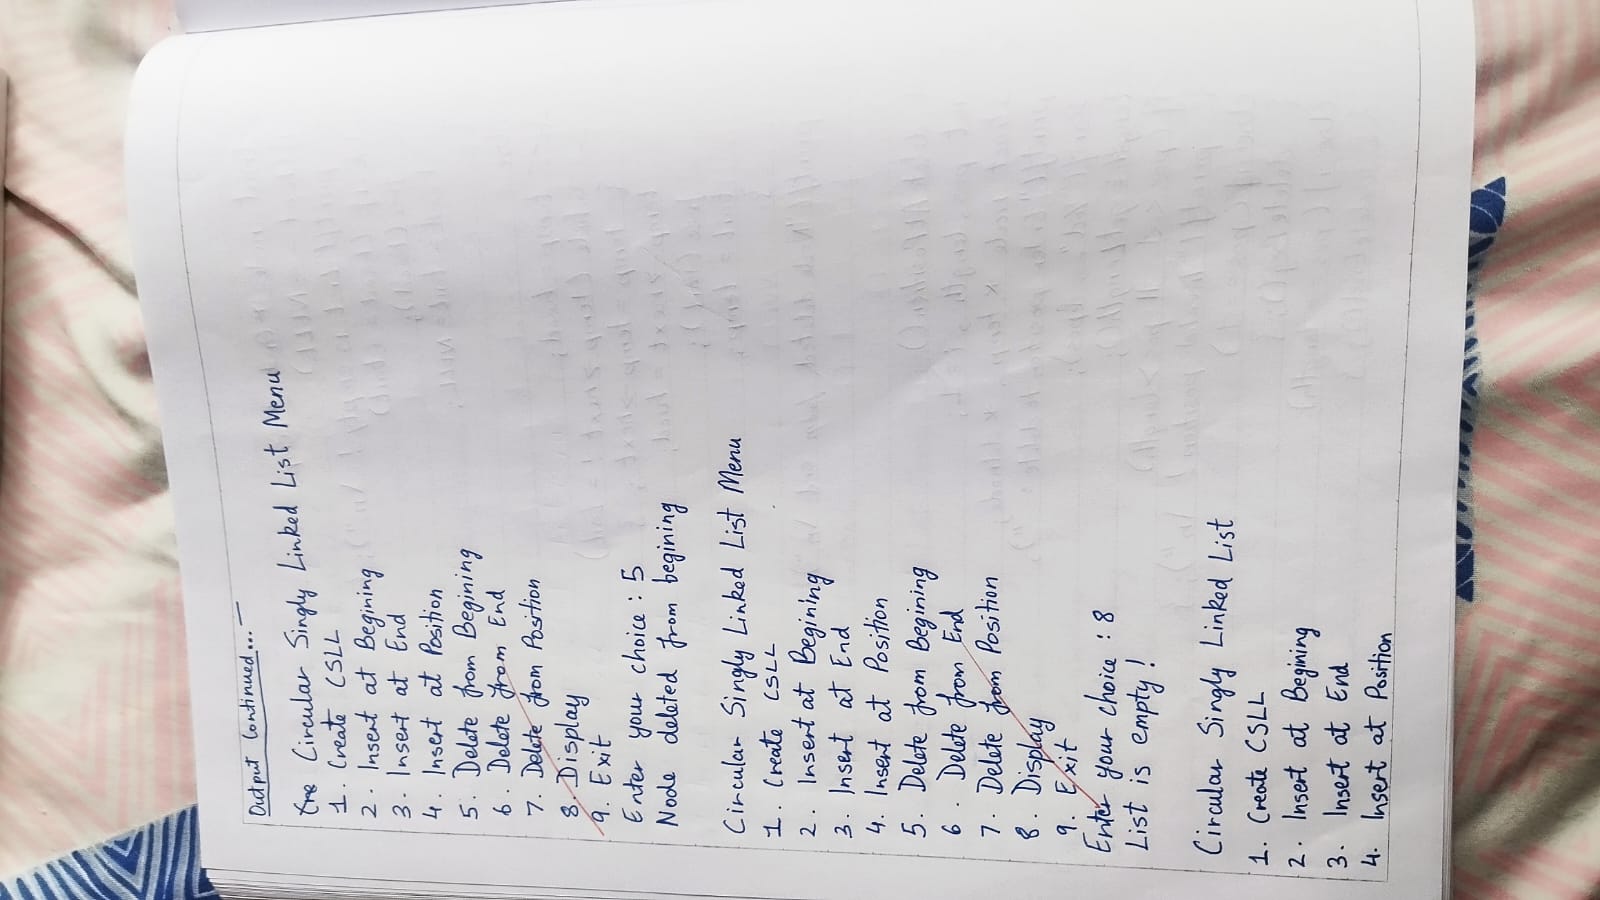 Output Continued...
Cre Circular Singly Linked List Menu
1. Create CSLL
2. Insert at Begining
3. Insert at End
4. Insert at Position
5. Delete from Begining
6. Delete from End
7. Delete from Position
8. Display
9. Exit
Enter your choice : 5
Node deleted from begining
Circular Singly Linked List Menu
1. Create CSLL
2. Insert at Begining
3. Insert at End
4. Insert at Position
5. Delete from Begining
6. Delete from End
7. Delete from Position
8. Display
9. Exit
Enter your choice : 8
List is empty!
Circular Singly Linked List
1. Create CSLL
2. Insert at Begining
3. Insert at End
4. Insert at Position